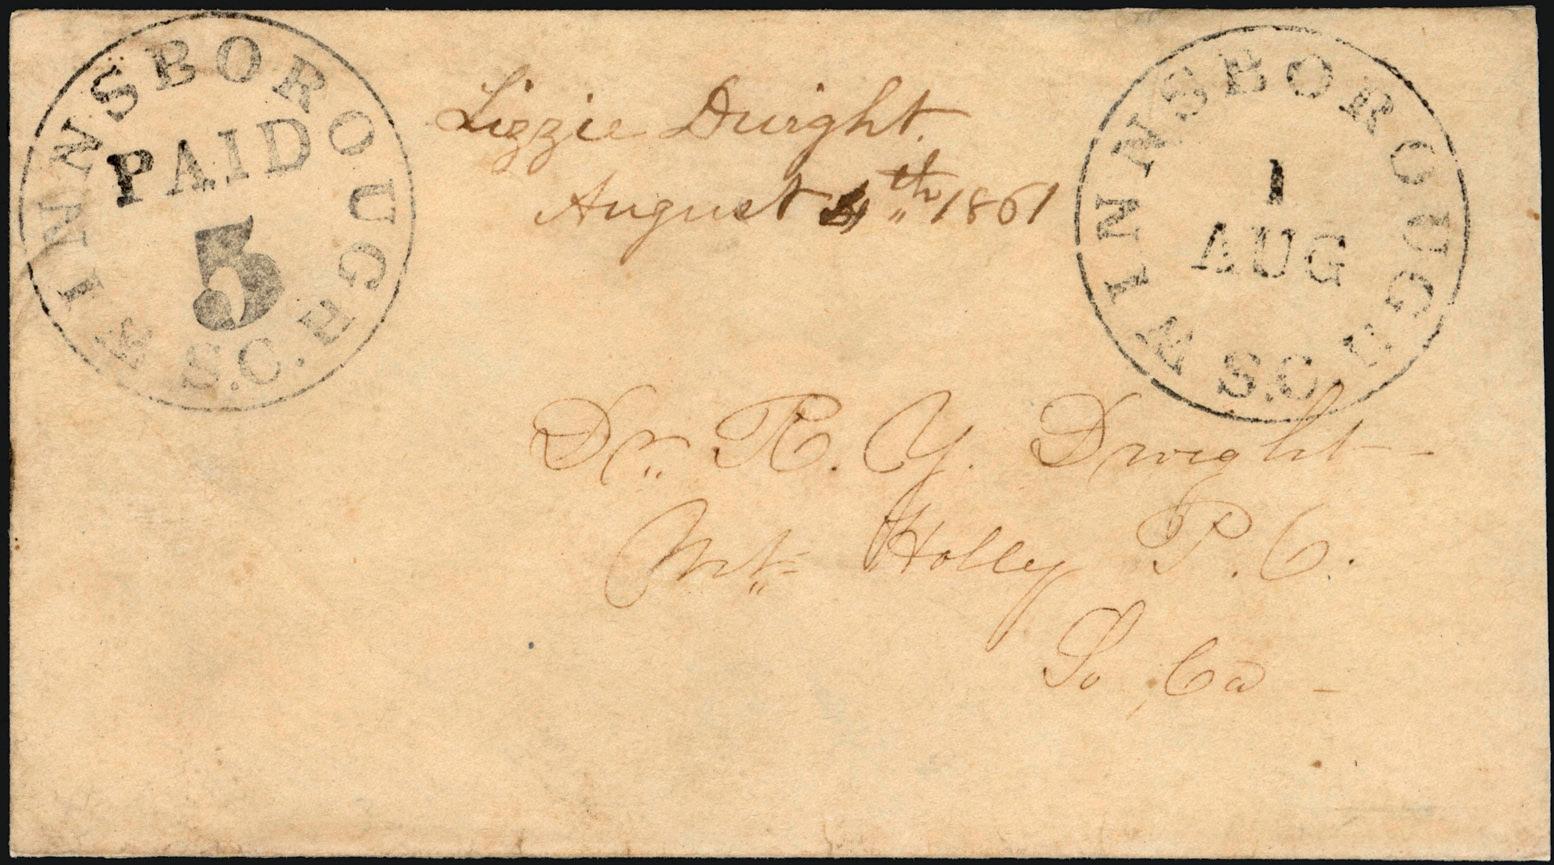 WINNSBOROUGH S.C.
PAID
5
Lizzie Dwight.
August 4th 1861
WINNSBOROUGH S.C.
1
AUG
Dr. R. Y. Dwight
Mt. Holly P. O.
So Ca